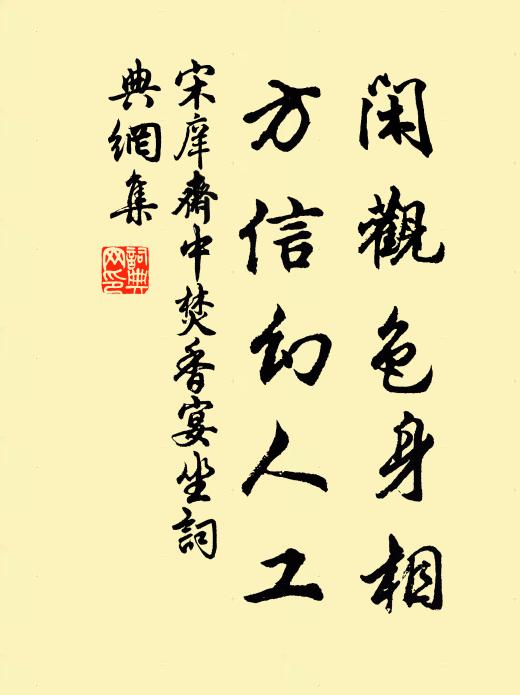 閑觀色身相
方信幻人工
宋庠齋中焚香宴坐詞
典網集
詞典
网印